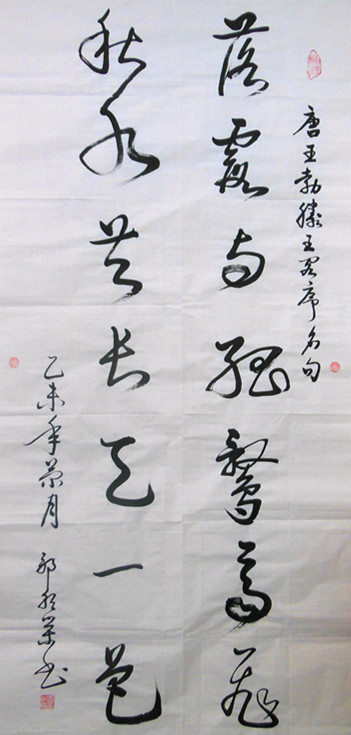 唐王勃滕王阁序名句
落霞与孤鹜齐飞
秋水共长天一色
乙未年 月
郭 书